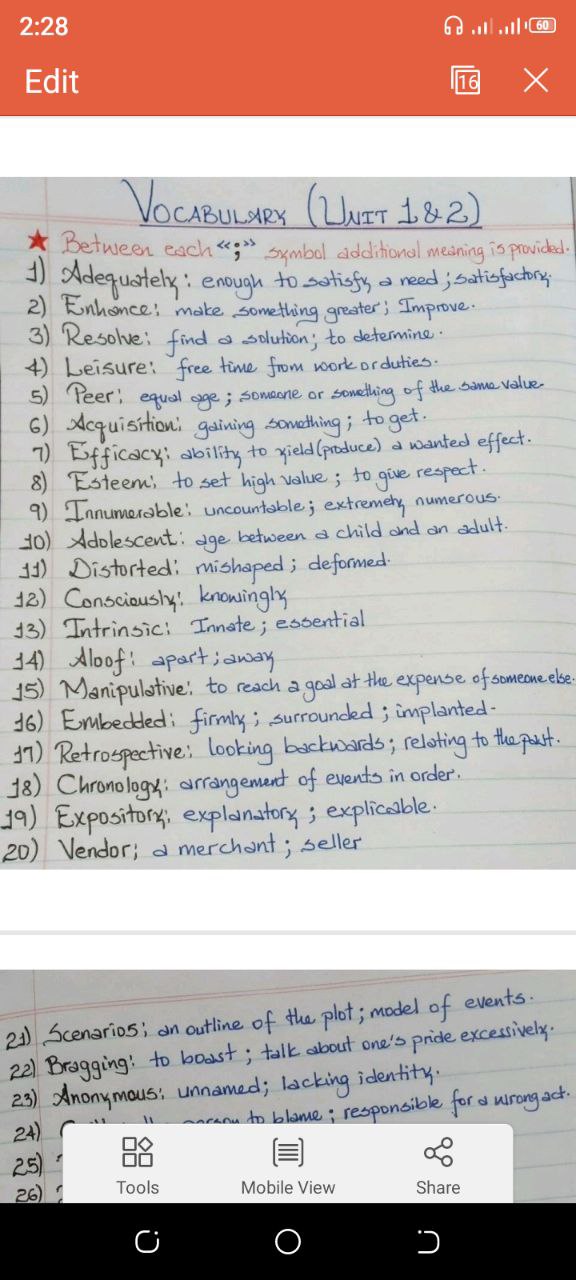 2:28
60
Edit
16
VOCABULARY (UNIT 1 & 2)
★ Between each “;” symbol additional meaning is provided.
1) Adequately: enough to satisfy a need; satisfactory.
2) Enhance: make something greater; Improve.
3) Resolve: find a solution; to determine.
4) Leisure: free time from work or duties.
5) Peer: equal age; someone or something of the same value.
6) Acquisition: gaining something; to get.
7) Efficacy: ability to yield (produce) a wanted effect.
8) Esteem: to set high value; to give respect.
9) Innumerable: uncountable; extremely numerous.
10) Adolescent: age between a child and an adult.
11) Distorted: mishaped; deformed.
12) Consciously: knowingly
13) Intrinsic: Innate; essential
14) Aloof: apart; away
15) Manipulative: to reach a goal at the expense of someone else.
16) Embedded: firmly; surrounded; implanted-
17) Retrospective: looking backwards; relating to the past.
18) Chronology: arrangement of events in order.
19) Expository: explanatory; explicable.
20) Vendor; a merchant; seller
21) Scenarios; an outline of the plot; model of events.
22) Bragging: to boast; talk about one's pride excessively.
23) Anonymous: unnamed; lacking identity.
24) to blame; responsible for a wrong act.
25)
26)
Tools
Mobile View
Share